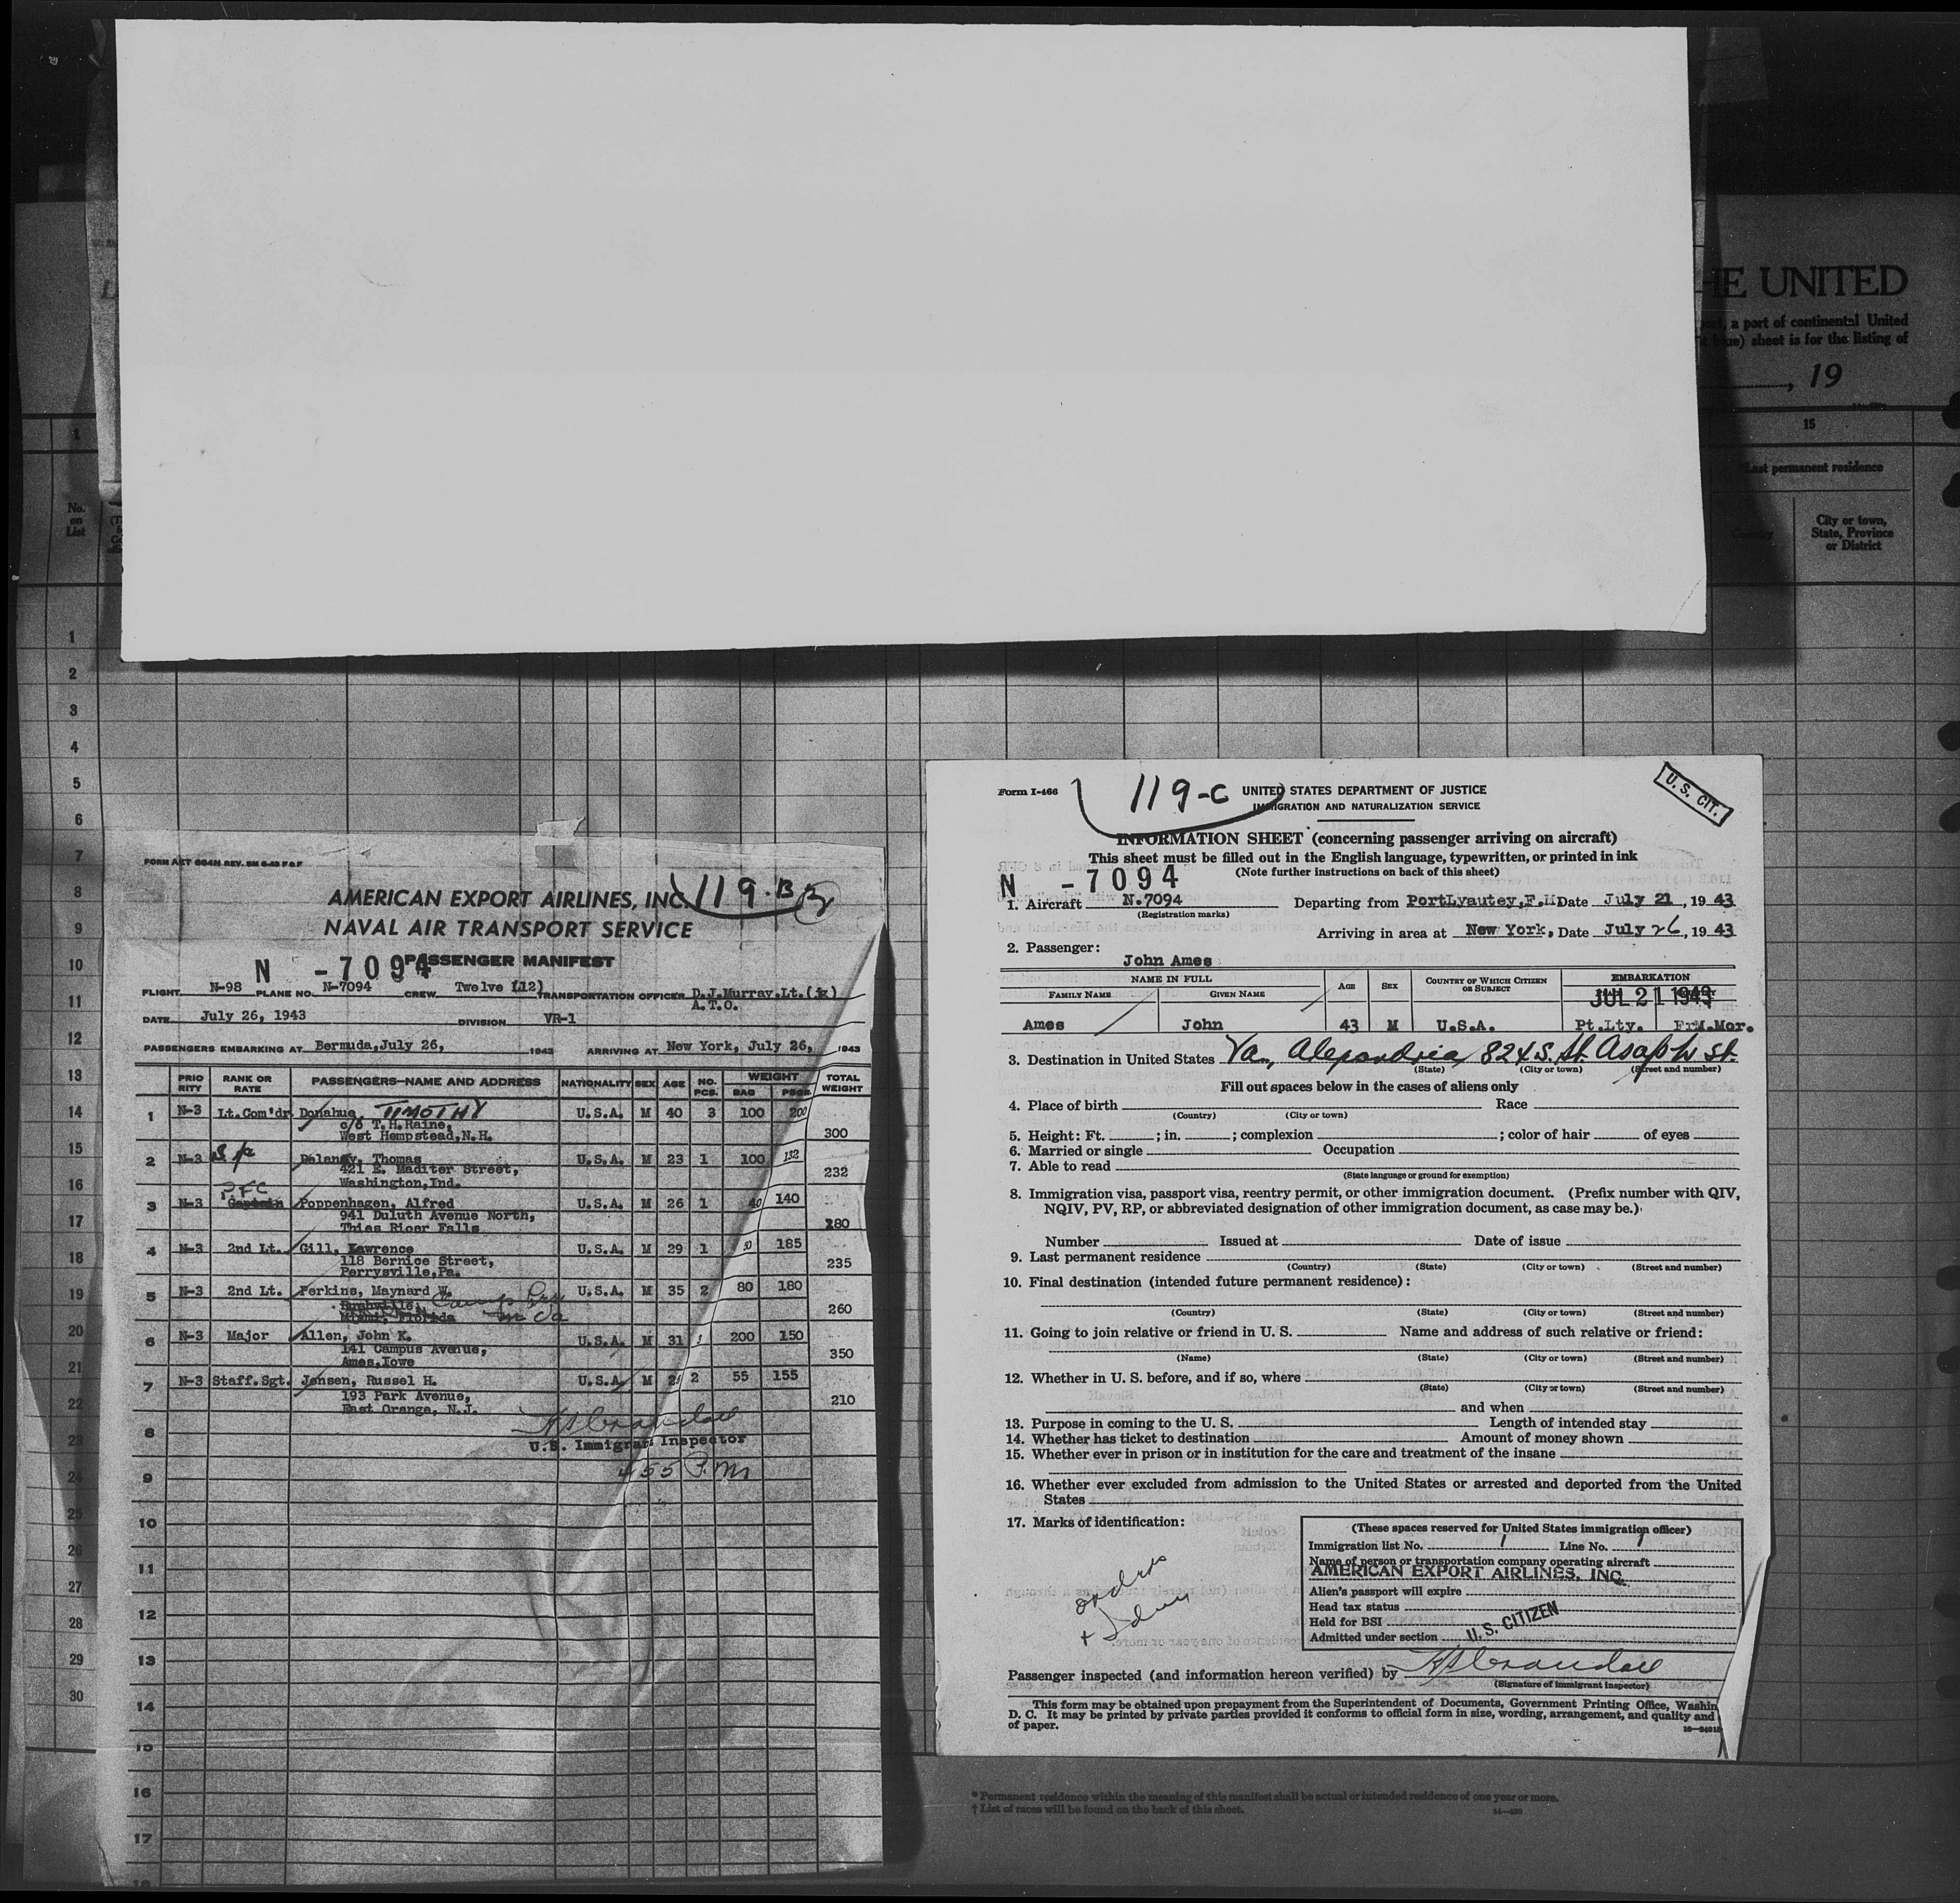 HE UNITED
port, a part of continental United
blue) sheet is for the listing of
, 19
1
15
Last permanent residence
No.
on
List
Country
City or town,
State, Province
or District
1
2
3
4
5
6
7
8
9
10
11
12
13
14
15
16
17
18
19
20
21
22
23
24
25
26
27
28
29
30
FORM AET 604N REV. 5M 6-43 F&F
AMERICAN EXPORT AIRLINES, INC.
119-B
NAVAL AIR TRANSPORT SERVICE
PASSENGER MANIFEST
N - 7094
FLIGHT N-98 PLANE NO. N-7094 CREW Twelve (12) TRANSPORTATION OFFICER D.J.Murray,Lt.(jg)
A.T.O.
DATE July 26, 1943 DIVISION VR-1
PASSENGERS EMBARKING AT Bermuda,July 26, 1943 ARRIVING AT New York, July 26, 1943
PRIORITY RANK OR RATE PASSENGERS—NAME AND ADDRESS NATIONALITY SEX AGE NO. PCS. WEIGHT BAG PSGR. TOTAL WEIGHT
1 N-3 Lt.Com'dr Donahue, TIMOTHY U.S.A. M 40 3 100 200
c/o T.H.Raine,
West Hempstead,N.H. 300
2 N-3 Delaney, Thomas U.S.A. M 23 1 100 132
421 E. Maditer Street, 232
Washington,Ind.
PFC
3 N-3 Captain Poppenhagen, Alfred U.S.A. M 26 1 40 140
941 Duluth Avenue North,
Thies Ricer Falls 180
4 N-3 2nd Lt. Gill, Lawrence U.S.A. M 29 1 50 185
118 Bernice Street, 235
Perrysville,Pa.
5 N-3 2nd Lt. Perkins, Maynard W. U.S.A. M 35 2 80 180
Miami, Florida 260
6 N-3 Major Allen, John K. U.S.A. M 31 3 200 150
141 Campus Avenue, 350
Ames,Iowe
7 N-3 Staff.Sgt. Jensen, Russel H. U.S.A. M 2 55 155
193 Park Avenue,
East Orange, N.J. 210
8
U.S. Immigrant Inspector
9 455 P.M
10
11
12
13
14
15
16
17
18
Form I-466
119-C
UNITED STATES DEPARTMENT OF JUSTICE
IMMIGRATION AND NATURALIZATION SERVICE
U. S. CIT.
INFORMATION SHEET (concerning passenger arriving on aircraft)
This sheet must be filled out in the English language, typewritten, or printed in ink
(Note further instructions on back of this sheet)
N - 7094
1. Aircraft N.7094 Departing from PortLyautey,F.M Date July 21, 19 43
(Registration marks)
Arriving in area at New York, Date July 26, 19 43
2. Passenger:
John Ames
NAME IN FULL AGE SEX COUNTRY OF WHICH CITIZEN OR SUBJECT EMBARKATION
FAMILY NAME GIVEN NAME JUL 21 1943
Ames John 43 M U.S.A. Pt.Lty. FrM.Mor.
3. Destination in United States Va., Alexandria 824 S. St. Asaph St.
(State) (City or town) (Street and number)
Fill out spaces below in the cases of aliens only
4. Place of birth Race
(Country) (City or town)
5. Height: Ft. ; in. ; complexion ; color of hair of eyes
6. Married or single Occupation
7. Able to read
(State language or ground for exemption)
8. Immigration visa, passport visa, reentry permit, or other immigration document. (Prefix number with QIV,
NQIV, PV, RP, or abbreviated designation of other immigration document, as case may be.)
Number Issued at Date of issue
9. Last permanent residence
(Country) (State) (City or town) (Street and number)
10. Final destination (intended future permanent residence):
(Country) (State) (City or town) (Street and number)
11. Going to join relative or friend in U. S. Name and address of such relative or friend:
(Name) (State) (City or town) (Street and number)
12. Whether in U. S. before, and if so, where
(State) (City or town) (Street and number)
and when
13. Purpose in coming to the U. S. Length of intended stay
14. Whether has ticket to destination Amount of money shown
15. Whether ever in prison or in institution for the care and treatment of the insane
16. Whether ever excluded from admission to the United States or arrested and deported from the United
States
17. Marks of identification:
orders
(These spaces reserved for United States immigration officer)
Immigration list No. 1 Line No. 1
Name of person or transportation company operating aircraft
AMERICAN EXPORT AIRLINES, INC.
Alien's passport will expire
Head tax status
Held for BSI
Admitted under section U. S. CITIZEN
Passenger inspected (and information hereon verified) by
(Signature of immigrant inspector)
This form may be obtained upon prepayment from the Superintendent of Documents, Government Printing Office, Washin
D. C. It may be printed by private parties provided it conforms to official form in size, wording, arrangement, and quality and
of paper.
* Permanent residence within the meaning of this manifest shall be actual or intended residence of one year or more.
† List of races will be found on the back of this sheet.